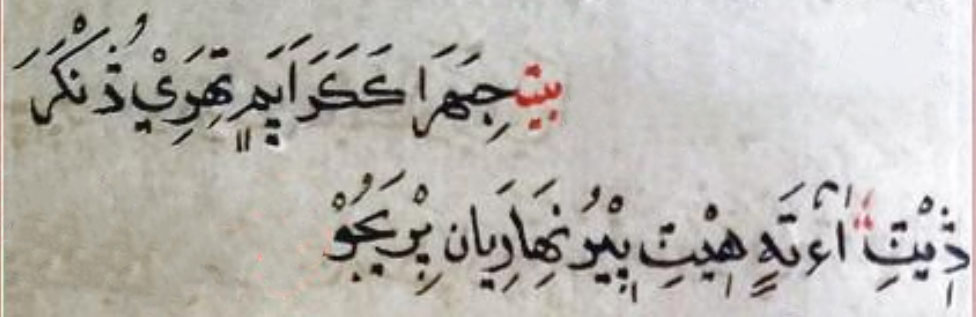 بيت جِهَرَا كَكَرَ اَپَمِ تِهَرِيْ ذُنْكَرَ
ذِيْتِ اَءُ تَهٍ هِيْتِ پِيْرُ نِهَارِيَان پِرْيَجُوْ